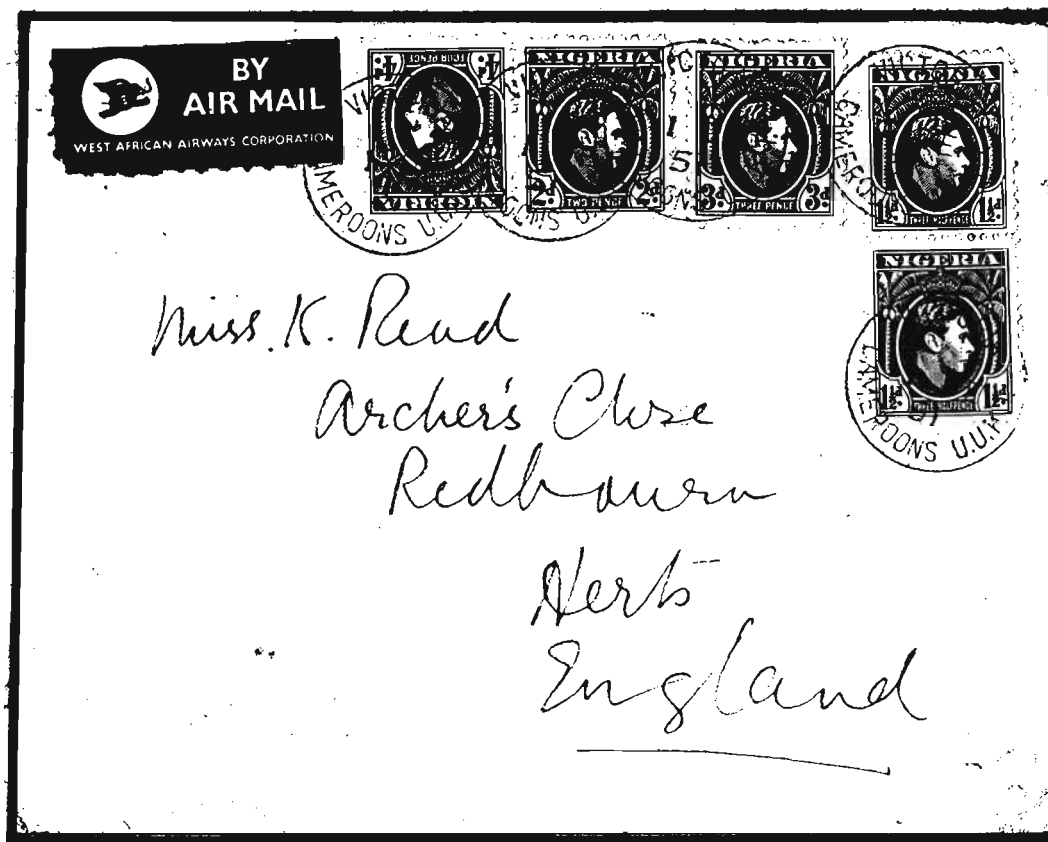 BY
AIR MAIL
WEST AFRICAN AIRWAYS CORPORATION
4d 4d
FOUR PENCE
NIGERIA
NIGERIA
2d TWO PENCE 2d
NIGERIA
3d THREE PENCE 3d
NIGERIA
1½d THREE HALFPENCE 1½d
NIGERIA
1½d THREE HALFPENCE 1½d
CAMEROONS U.U.K
Miss. K. Read
Archer's Close
Redbourn
Herts
England